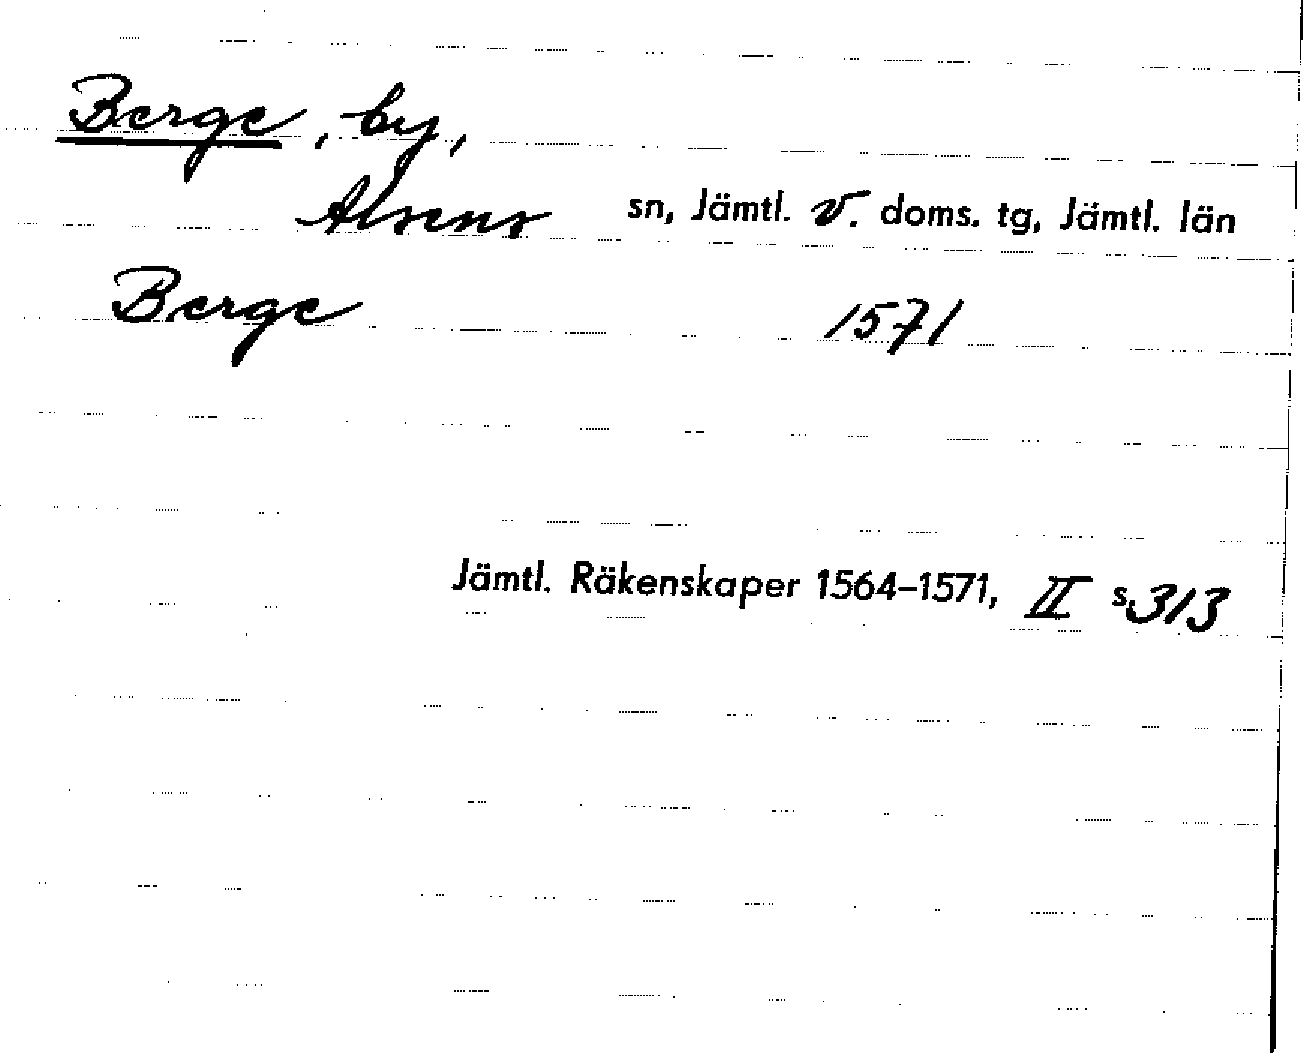 Berge, by,
Alsens sn, Jämtl. v. doms. tg, Jämtl. län
Berge 1571
Jämtl. Räkenskaper 1564–1571, II s. 313